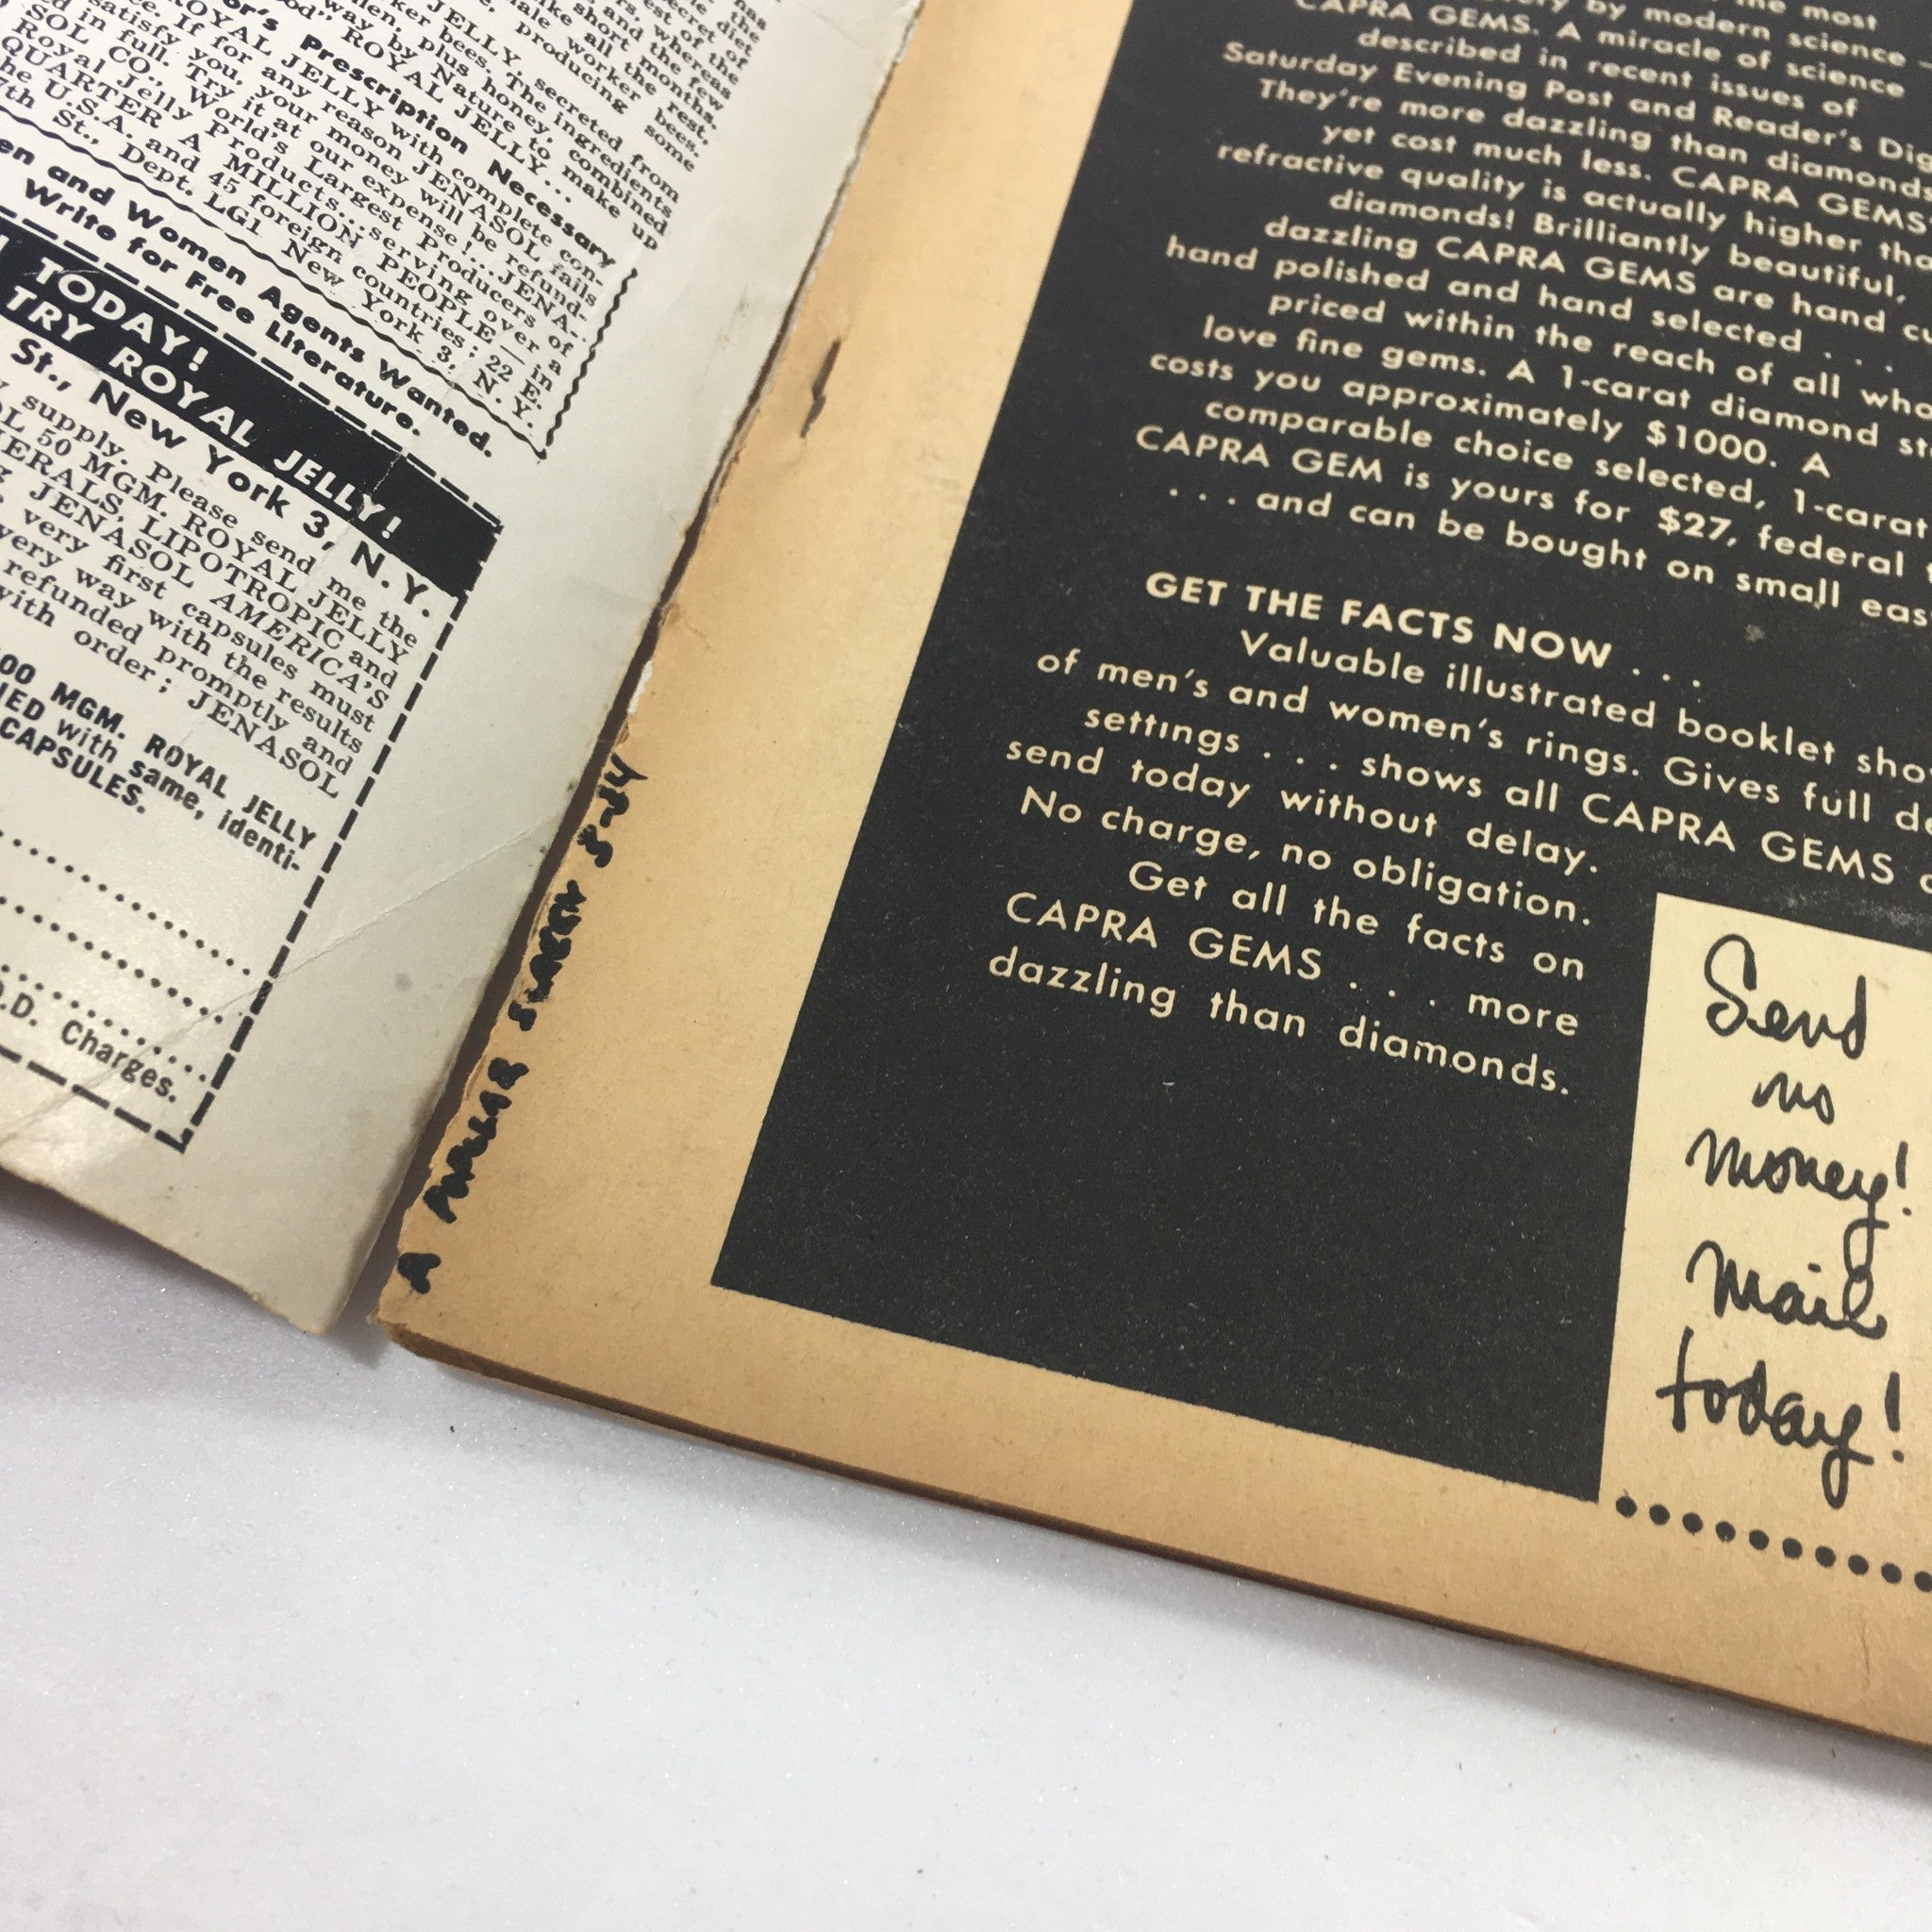 has
the
diet
of
secret of
est of the
whereas
and the few
ake short months.
all the rest,
ale worker bees.
producing some
JELLY, secreted from
ker bees. The ingredients
men, plus honey, combined
way by Nature to make up
od", ROYAL JELLY...
or's Prescription Necessary
ROYAL JELLY with complete con-
e. If for any reason JENASOL fails
satisfy you, your money will be refund-
ed in full. Try it at our expense!...JENA-
SOL CO., World's Largest Producers of
Royal Jelly Products...serving over a
QUARTER A MILLION PEOPLE — in
he U.S.A. and 45 foreign countries; 22 E.
7th St., Dept. LG1 New York 3, N. Y.
en and Women Agents Wanted.
Write for Free Literature.
TODAY!
TRY ROYAL JELLY!
St., New York 3, N.Y.
supply. Please send me the
OL 50 MGM. ROYAL JELLY
ERALS, LIPOTROPIC and
JENASOL AMERICA'S
very first capsules must
very way with the results
refunded promptly and
with order; JENASOL
00 MGM. ROYAL JELLY
IED with same, identi-
CAPSULES.
.D. Charges.
A
the most
by modern science —
CAPRA GEMS. A miracle of science
described in recent issues of
Saturday Evening Post and Reader's Dig
They're more dazzling than diamonds
yet cost much less. CAPRA GEMS
refractive quality is actually higher tha
diamonds! Brilliantly beautiful,
dazzling CAPRA GEMS are hand cu
hand polished and hand selected . . .
priced within the reach of all who
love fine gems. A 1-carat diamond st
costs you approximately $1000. A
comparable choice selected, 1-carat
CAPRA GEM is yours for $27, federal t
. . . and can be bought on small eas
GET THE FACTS NOW . . .
Valuable illustrated booklet sho
of men's and women's rings. Gives full de
settings . . . shows all CAPRA GEMS
send today without delay.
No charge, no obligation.
Get all the facts on
CAPRA GEMS . . . more
dazzling than diamonds.
Send
no
money!
Mail
today!